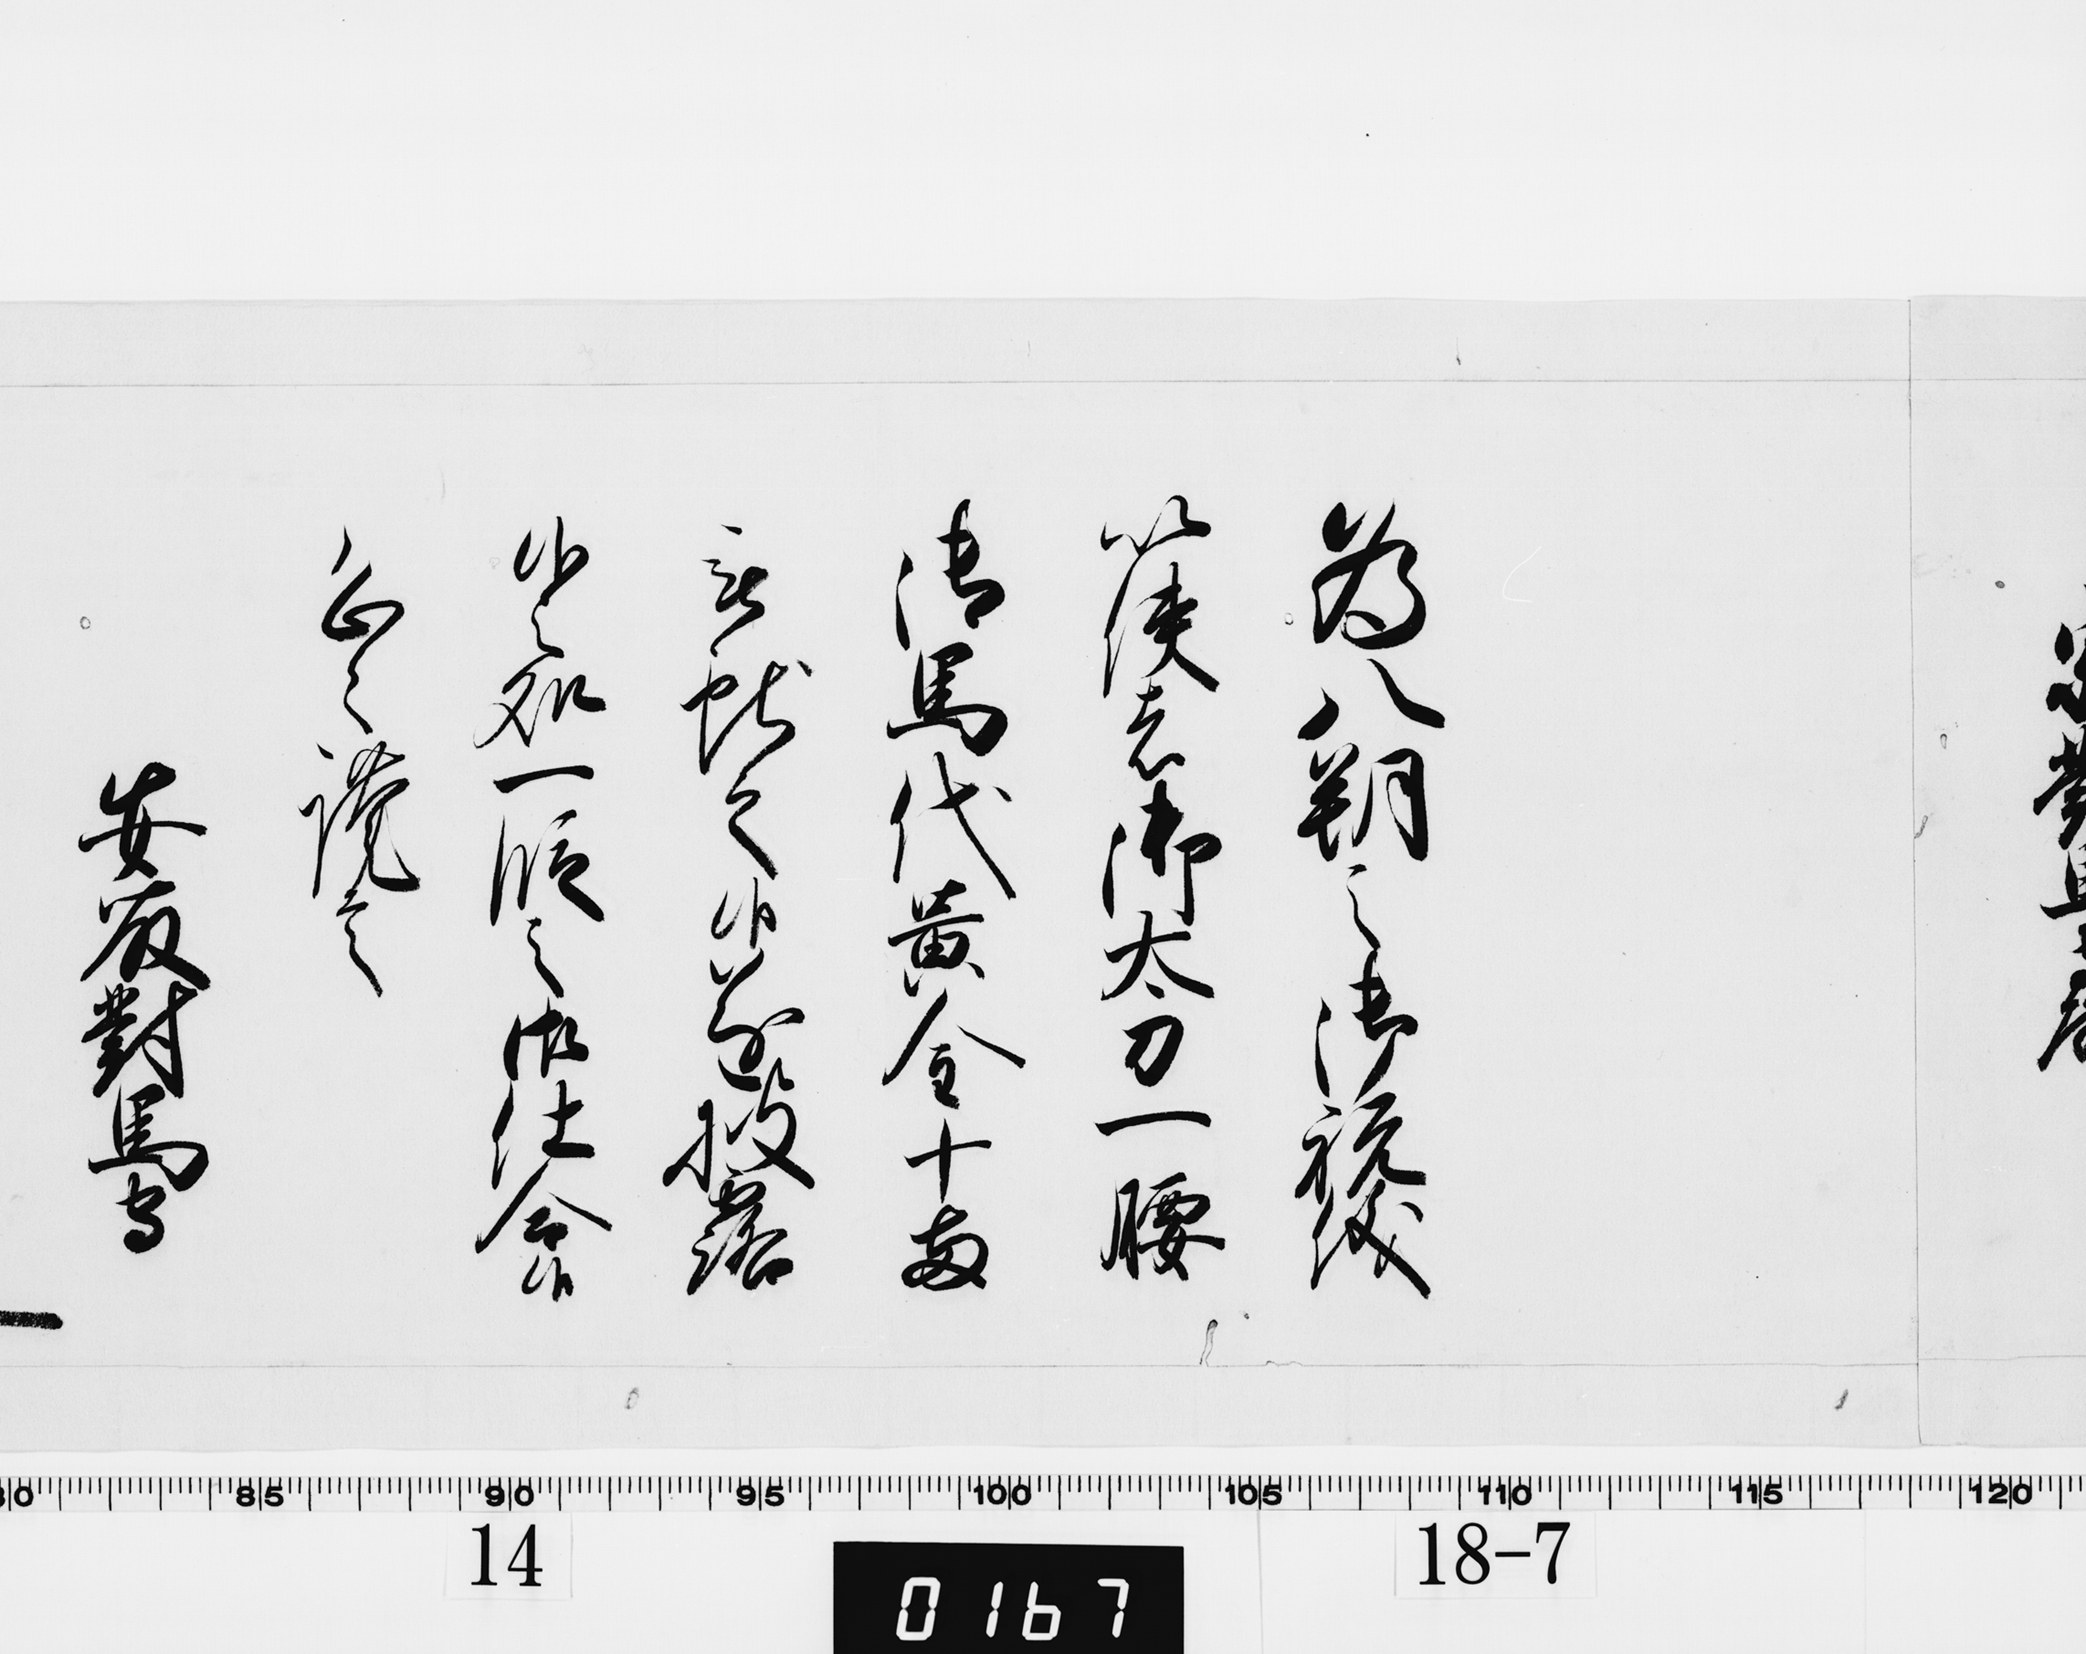 為八朔之御祝儀
以使者御太刀一腰
御馬代黄金十両
被献之候遂披露
候之処一段之御仕合候
恐々謹言
安藤對馬守
宗對馬守
80 85 90 95 100 105 110 115 120
14
18-7
0167